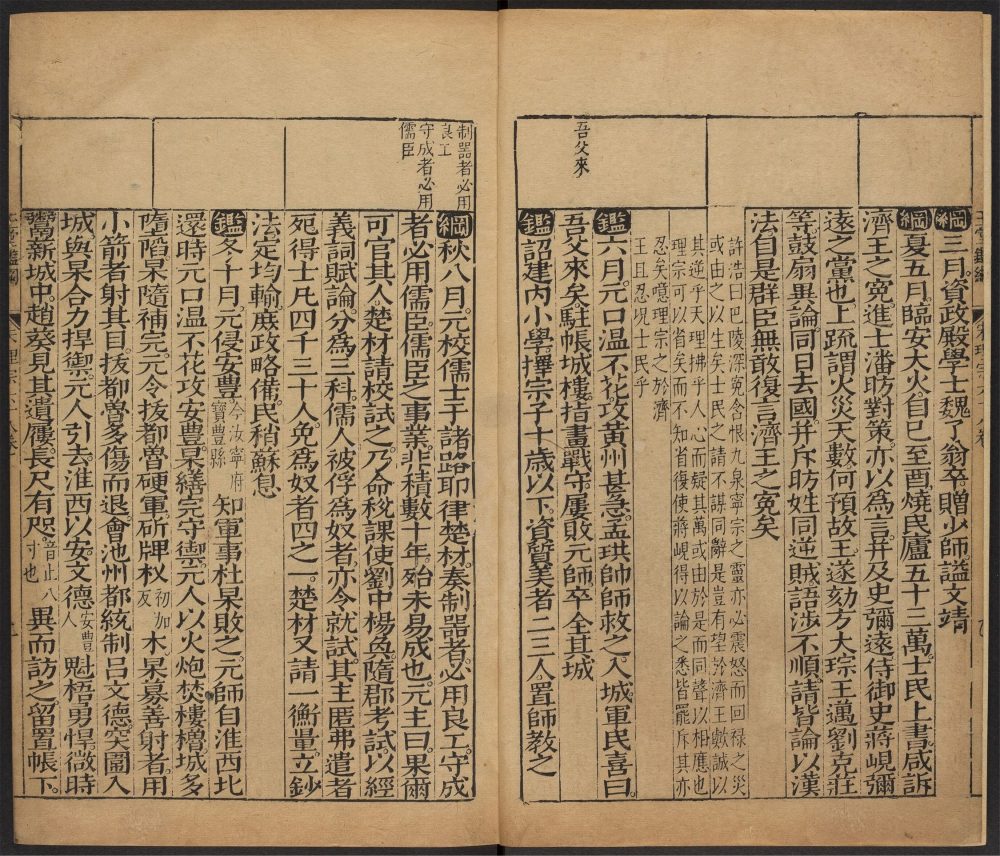 吾父來
綱三月資政殿學士魏了翁卒贈少師謚文靖
綱夏五月臨安大火自巳至酉燒民廬五十三萬士民上書咸訴
濟王之寃進士潘昉對策亦以為言并及史彌遠侍御史蔣峴彌
遠之黨也上䟽謂火災天數何預故王遂劾方大琮王邁劉克莊
等鼓扇異論同日去國并斥昉姓同逆賊語涉不順請皆論以漢
法自是群臣無敢復言濟王之寃矣
許浩曰巴陵深寃含恨九泉寧宗之靈亦必震怒而回祿之災
或由之以生矣士民之請不謀同辭是豈有望於濟王歟誠以
其逆乎天理拂乎人心而疑其萬或由於是而同聲以相應也
理宗可以省矣而不知省復使蔣峴得以論之悉皆罷斥其亦
忍矣噫理宗之於濟
王且忍況士民乎
鑑六月元口溫不花攻黃州甚急孟珙帥師救之入城軍民喜曰
吾父來矣駐帳城樓指畫戰守屢敗元師卒全其城
鑑詔建內小學擇宗子十歲以下資質美者二三人置師教之
制器者必用
良工
守成者必用
儒臣
綱秋八月元校儒士于諸路耶律楚材奏制器者必用良工守成
者必用儒臣儒臣之事業非積數十年殆未易成也元主曰果爾
可官其人楚材請校試之乃命稅課使劉中楊奐隨郡考試以經
義詞賦論分為三科儒人被俘為奴者亦令就試其主匿弗遣者
死得士凡四千三十人免為奴者四之一楚材又請一衡量立鈔
法定均輸庶政略備民稍蘇息
鑑冬十月元侵安豊今汝寧府寶豊縣知軍事杜杲敗之元師自淮西北
還時元口溫不花攻安豊杲繕完守禦元人以火炮焚樓櫓城多
墮陷杲隨補完元令拔都魯硬軍斫牌杈初加反木杲募善射者用
小箭者射其目拔都魯多傷而退會池州都統制呂文德突圍入
城與杲合力捍禦元人引去淮西以安文德安豊人魁梧勇悍微時
鬻薪城中趙葵見其遺屨長尺有咫音止八寸也異而訪之留置帳下